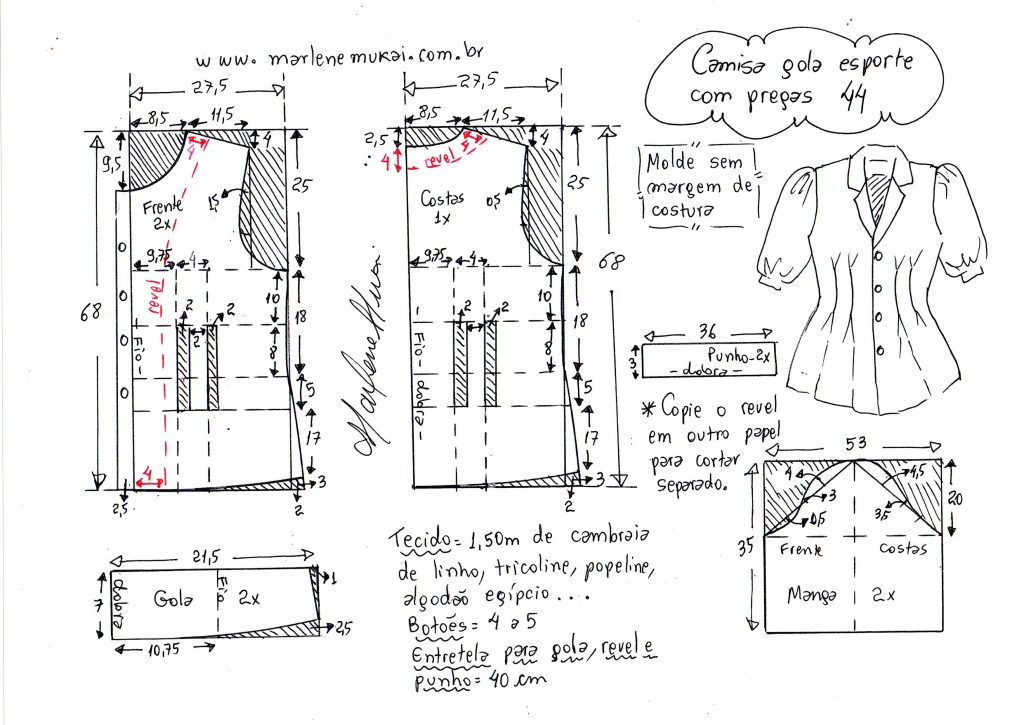 www.marlenemukai.com.br
Camisa gola esporte
com pregas 44
Molde sem
margem de
costura
27,5
8,5
11,5
9,5
4
4
25
Frente
2x
1,5
9,75
4
68
revel
10
18
2
2
2
8
Fio
5
17
4
3
2,5
2
27,5
8,5
11,5
2,5
4
4
revel
5
25
Costas
1x
0,5
9,75
4
68
10
18
2
2
2
8
- Fio - dobra -
5
17
3
2
Marlene Mukai
36
3
Punho-2x
- dobra -
* Copie o revel
em outro papel
para cortar
separado.
53
4
4,5
3
3,5
0,5
20
35
Frente
Costas
Manga 2x
21,5
7
dobra
Gola
Fio
2x
1
2,5
10,75
Tecido= 1,50m de cambraia
de linho, tricoline, popeline,
algodão egípcio ...
Botões= 4 a 5
Entretela para gola, revel e
punho= 40 cm